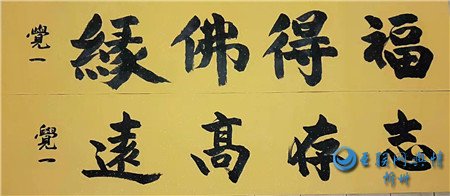 福得佛緣
覺一
志存高遠
覺一